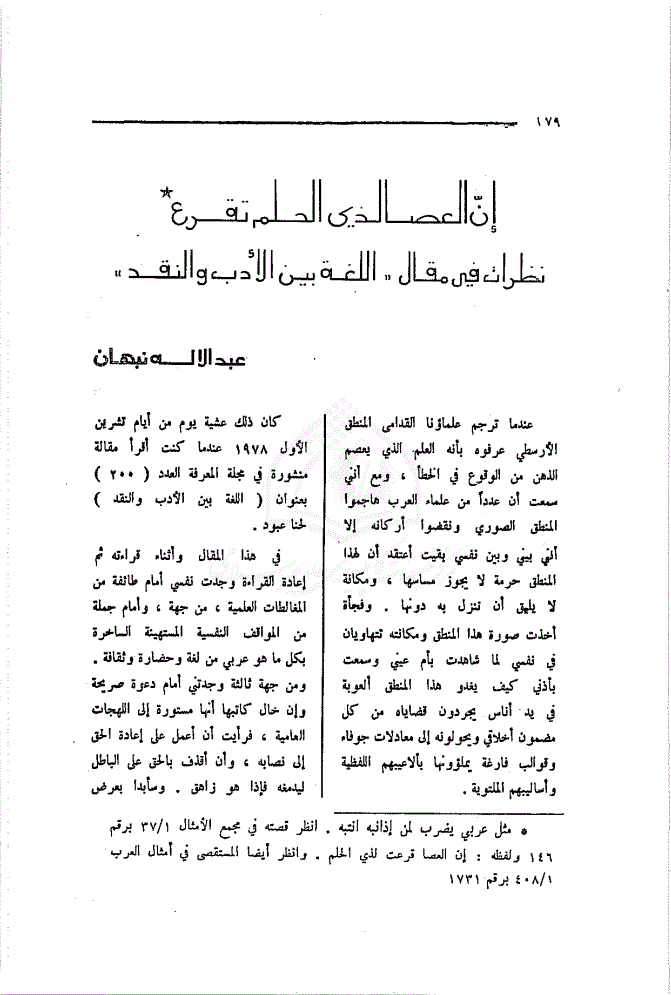 ١٧٩
إنّ العصا لذي الحلم تقرع *
نظرات في مقال « اللغة بين الأدب والنقد »
عبد الإله نبهان
عندما ترجم علماؤنا القدامى المنطق
الأرسطي عرفوه بأنه العلم الذي يعصم
الذهن من الوقوع في الخطأ ، ومع أني
سمعت أن عدداً من علماء العرب هاجموا
المنطق الصوري ونقضوا أركانه إلا
أنني بيني وبين نفسي بقيت أعتقد أن لهذا
المنطق حرمة لا يجوز مساسها ، ومكانة
لا يليق أن تنزل به دونها . وفجأة
أخذت صورة هذا المنطق ومكانته تتهاويان
في نفسي لما شاهدت بأم عيني وسمعت
بأذني كيف يغدو هذا المنطق ألعوبة
في يد أناس يجردون قضاياه من كل
مضمون أخلاقي ويحولونه إلى معادلات جوفاء
وقوالب فارغة يملؤونها بألاعيبهم اللفظية
وأساليبهم الملتوية .
كان ذلك عشية يوم من أيام تشرين
الأول ١٩٧٨ عندما كنت أقرأ مقالة
منشورة في مجلة المعرفة العدد ( ٢٠٠ )
بعنوان ( اللغة بين الأدب والنقد )
لحنا عبود .
في هذا المقال وأثناء قراءته ثم
إعادة القراءة وجدت نفسي أمام طائفة من
المغالطات العلمية ، من جهة ، وأمام جملة
من المواقف النفسية المستهينة الساخرة
بكل ما هو عربي من لغة وحضارة وثقافة .
ومن جهة ثالثة وجدتني أمام دعوة صريحة
وإن خال كاتبها أنها مستورة إلى اللهجات
العامية ، فرأيت أن أعمل على إعادة الحق
إلى نصابه ، وأن أقذف بالحق على الباطل
ليدمغه فإذا هو زاهق . وسأبدا بعرض
* مثل عربي يضرب لمن إذا نبه انتبه . انظر قصته في مجمع الأمثال ٣٧/١ برقم
١٤٦ ولفظه : إن العصا قرعت لذي الحلم . وانظر أيضا المستقصى في أمثال العرب
٤٠٨/١ برقم ١٧٣١